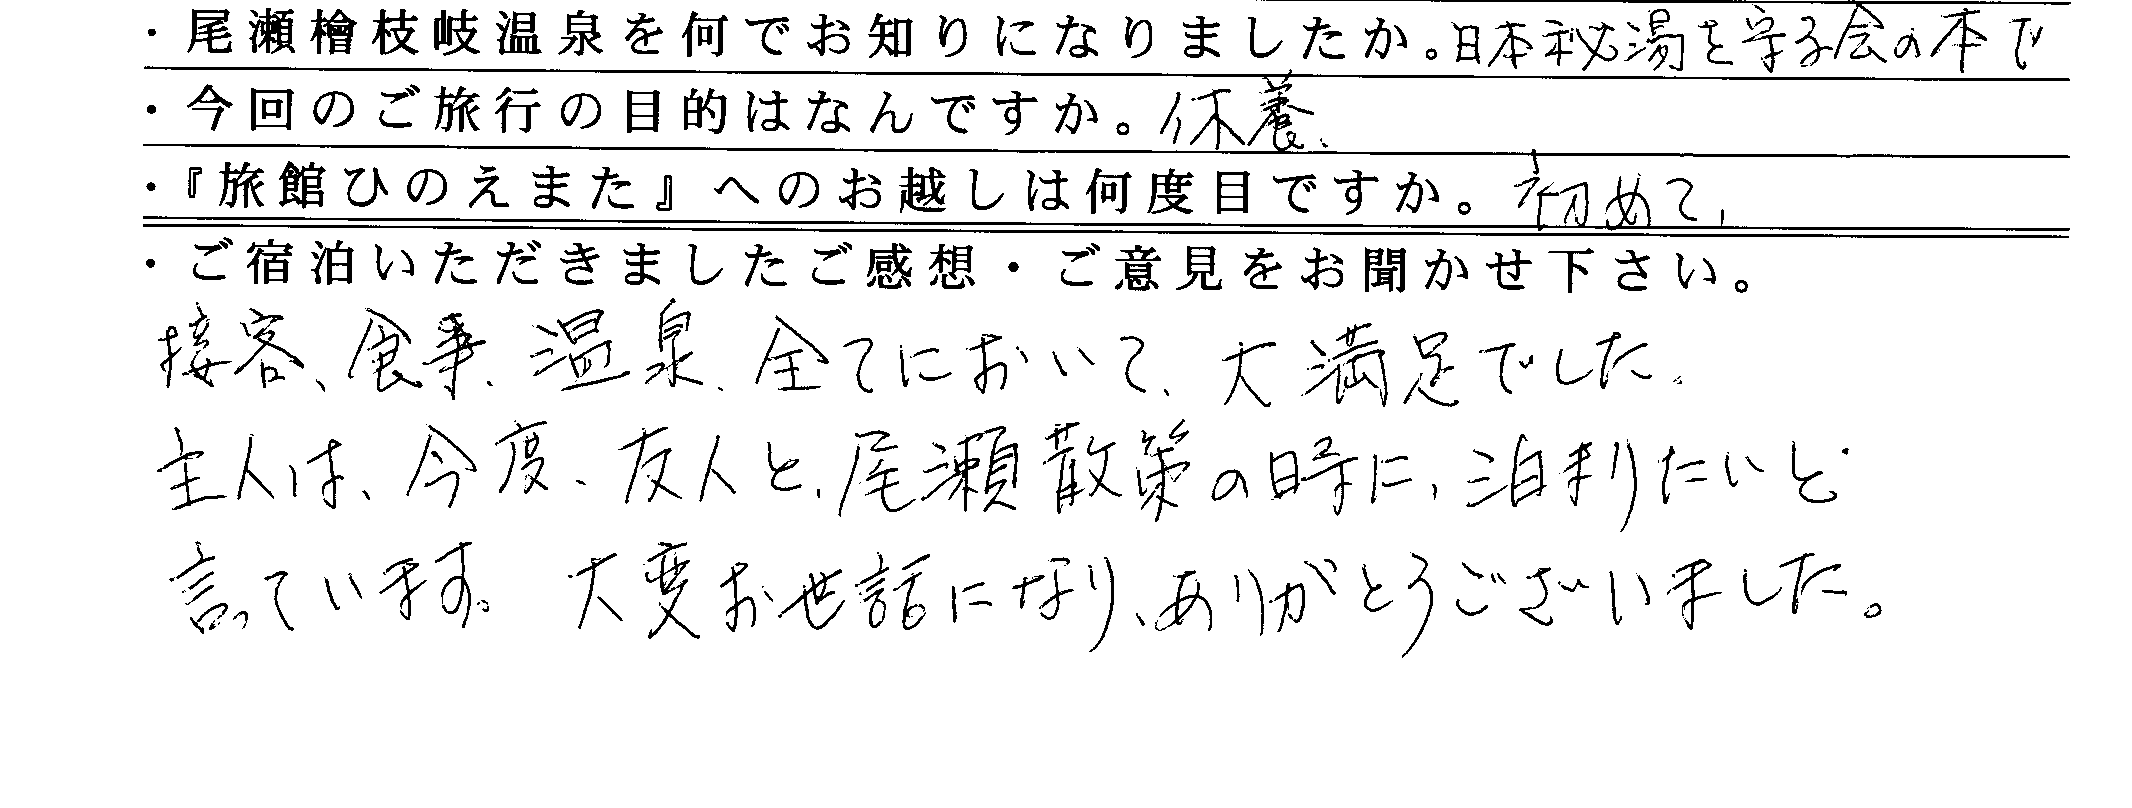 ・尾瀬檜枝岐温泉を何でお知りになりましたか。日本秘湯を守る会の本で
・今回のご旅行の目的はなんですか。休養、
・『旅館ひのえまた』へのお越しは何度目ですか。初めて、
・ご宿泊いただきましたご感想・ご意見をお聞かせ下さい。
接客、食事、温泉、全てにおいて、大満足でした。
主人は、今度、友人と、尾瀬散策の時に、泊まりたいと
言っています。大変お世話になり、ありがとうございました。